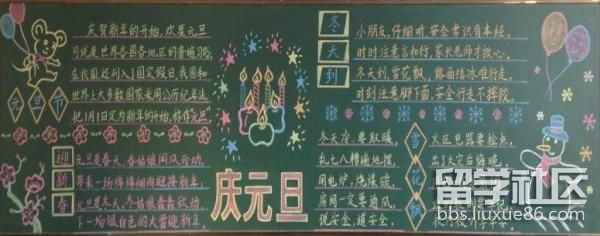 元旦节
庆贺新年的开始,欢度元旦
可说是世界各国各地区的普遍习俗
在我国还列入了固定假日,我国和
世界上大多数国家采用公历纪年法
把1月1日定为新年的开始,称作元旦
迎新春
元旦是春天,春姑娘闻风而动,
带来一场绵绵细雨迎接新年
元旦是冬天,冬姑娘蠢蠢欲动
下一场银白色的大雪迎新年
庆元旦
冬天到
小朋友,仔细听,安全常识自本经,
时时注意言和行,家长老师才放心,
冬天到,雪花飘,路面结冰难行走,
时刻注意脚下面,安全行走不摔跤,
雪花飘
冬天冷,要取暖,
乱七八糟遍地摆,
用电炉,烧煤碳,
房间一定要通风
说安全,道安全,
火区电器要检点,
出了火灾后悔晚
留学社区
bbs.liuxue86.com